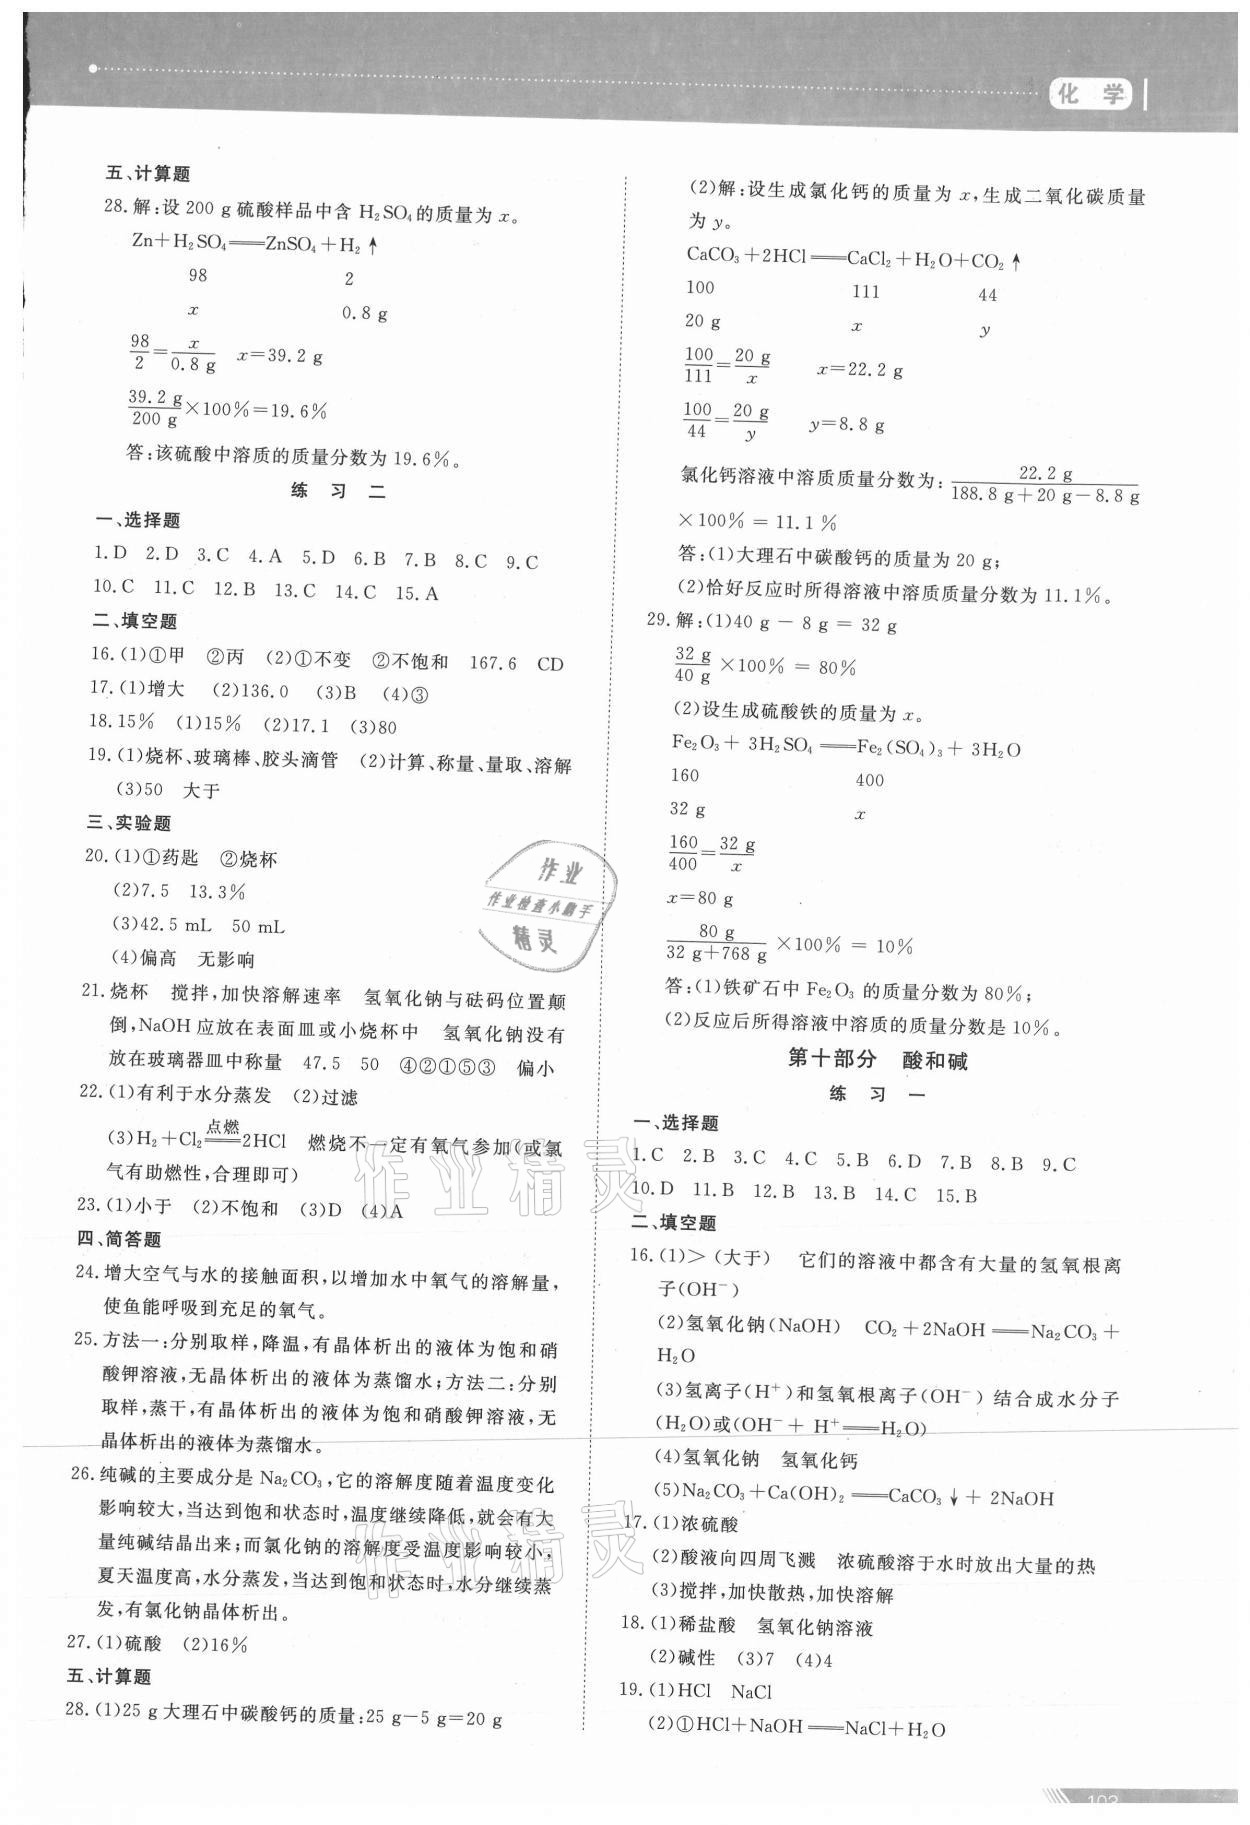 化 学
五、计算题
28.解:设 200 g 硫酸样品中含 H₂SO₄的质量为 x。
Zn+H₂SO₄══ZnSO₄+H₂↑
98 2
x 0.8 g
98/2=x/0.8 g x=39.2 g
39.2 g/200 g×100%=19.6%
答:该硫酸中溶质的质量分数为 19.6%。
练 习 二
一、选择题
1.D 2.D 3.C 4.A 5.D 6.B 7.B 8.C 9.C
10.C 11.C 12.B 13.C 14.C 15.A
二、填空题
16.(1)①甲 ②丙 (2)①不变 ②不饱和 167.6 CD
17.(1)增大 (2)136.0 (3)B (4)③
18.15% (1)15% (2)17.1 (3)80
19.(1)烧杯、玻璃棒、胶头滴管 (2)计算、称量、量取、溶解
(3)50 大于
三、实验题
20.(1)①药匙 ②烧杯
(2)7.5 13.3%
(3)42.5 mL 50 mL
(4)偏高 无影响
21.烧杯 搅拌,加快溶解速率 氢氧化钠与砝码位置颠
倒,NaOH 应放在表面皿或小烧杯中 氢氧化钠没有
放在玻璃器皿中称量 47.5 50 ④②①⑤③ 偏小
22.(1)有利于水分蒸发 (2)过滤
(3)H₂+Cl₂══点燃══2HCl 燃烧不一定有氧气参加(或氯
气有助燃性,合理即可)
23.(1)小于 (2)不饱和 (3)D (4)A
四、简答题
24.增大空气与水的接触面积,以增加水中氧气的溶解量,
使鱼能呼吸到充足的氧气。
25.方法一:分别取样,降温,有晶体析出的液体为饱和硝
酸钾溶液,无晶体析出的液体为蒸馏水;方法二:分别
取样,蒸干,有晶体析出的液体为饱和硝酸钾溶液,无
晶体析出的液体为蒸馏水。
26.纯碱的主要成分是 Na₂CO₃,它的溶解度随着温度变化
影响较大,当达到饱和状态时,温度继续降低,就会有大
量纯碱结晶出来;而氯化钠的溶解度受温度影响较小,
夏天温度高,水分蒸发,当达到饱和状态时,水分继续蒸
发,有氯化钠晶体析出。
27.(1)硫酸 (2)16%
五、计算题
28.(1)25 g 大理石中碳酸钙的质量:25 g-5 g=20 g
(2)解:设生成氯化钙的质量为 x,生成二氧化碳质量
为 y。
CaCO₃+2HCl══CaCl₂+H₂O+CO₂↑
100 111 44
20 g x y
100/111=20 g/x x=22.2 g
100/44=20 g/y y=8.8 g
氯化钙溶液中溶质质量分数为:22.2 g/188.8 g+20 g-8.8 g
×100% = 11.1 %
答:(1)大理石中碳酸钙的质量为 20 g;
(2)恰好反应时所得溶液中溶质质量分数为 11.1%。
29.解:(1)40 g - 8 g = 32 g
32 g/40 g×100% = 80%
(2)设生成硫酸铁的质量为 x。
Fe₂O₃+ 3H₂SO₄══Fe₂(SO₄)₃+ 3H₂O
160 400
32 g x
160/400=32 g/x
x=80 g
80 g/32 g+768 g×100% = 10%
答:(1)铁矿石中 Fe₂O₃ 的质量分数为 80%;
(2)反应后所得溶液中溶质的质量分数是 10%。
第十部分 酸和碱
练 习 一
一、选择题
1.C 2.B 3.C 4.C 5.B 6.D 7.B 8.B 9.C
10.D 11.B 12.B 13.B 14.C 15.B
二、填空题
16.(1)>(大于) 它们的溶液中都含有大量的氢氧根离
子(OH⁻)
(2)氢氧化钠(NaOH) CO₂+2NaOH══Na₂CO₃+
H₂O
(3)氢离子(H⁺)和氢氧根离子(OH⁻)结合成水分子
(H₂O)或(OH⁻+ H⁺══H₂O)
(4)氢氧化钠 氢氧化钙
(5)Na₂CO₃+Ca(OH)₂══CaCO₃↓+ 2NaOH
17.(1)浓硫酸
(2)酸液向四周飞溅 浓硫酸溶于水时放出大量的热
(3)搅拌,加快散热,加快溶解
18.(1)稀盐酸 氢氧化钠溶液
(2)碱性 (3)7 (4)4
19.(1)HCl NaCl
(2)①HCl+NaOH══NaCl+H₂O
103
作业
作业检查小帮手
精灵
作业精灵
作业精灵